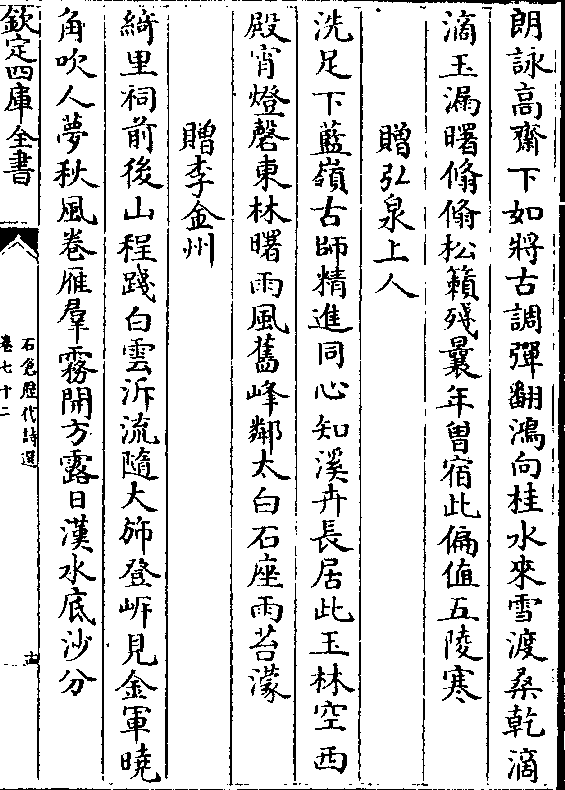 朗詠高齋下如將古調彈翻鴻向桂水來雪渡桑乾滴
滴玉漏曙翛翛松籟殘曩年曽宿此偏值五陵寒
贈弘泉上人
洗足下藍嶺古師精進同心知溪卉長居此玉林空西
殿宵燈磬東林曙雨風舊峰鄰太白石座雨苔濛
贈李金州
綺里祠前後山程踐白雲泝流隨大斾登岸見金軍曉
角吹人夢秋風卷雁羣霧開方露日漢水底沙分
欽定四庫全書
石倉歷代詩選
卷七十二